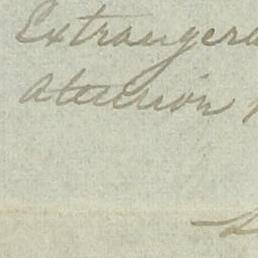 Extrangera
atencion